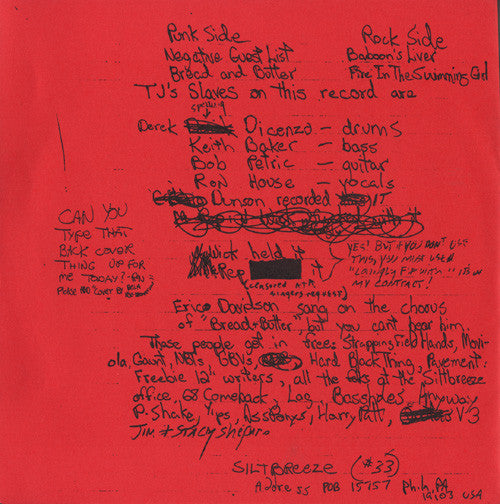 Punk Side
Negative Guest List
Bread and Butter
Rock Side
Baboon's Liver
Fire In The Swimming Girl
TJ's Slaves on this record are
spelling
Derek Dicenzo - drums
Keith Baker - bass
Bob Petric - guitar
Ron House - vocals
Dunson recorded IT
CAN YOU
TYPE THAT
BACK COVER
THING UP FOR
ME TODAY?
held it
it
(censored at
singers request)
YES! BUT IF YOU DON'T USE
THIS, YOU MUST USE A
IT'S IN
MY CONTRACT!
Davidson sang on the chorus
of "Bread+Butter", but you can't hear him.
These people get in free: Strapping Field Hands, Movi-
ola, Gaunt, NBTs, GBVs, Hard Black Thing, Pavement,
Freebie 12" writers, all the folks at the Siltbreeze
office, Comeback, Los, Bassholes, Anyway
R. Shake, Yips, Ass Ponys, Harry Platt, V-3
Jim & Stacy Shepard
SILTBREEZE (#33)
Address POB 15757 Phila, PA
19103 USA